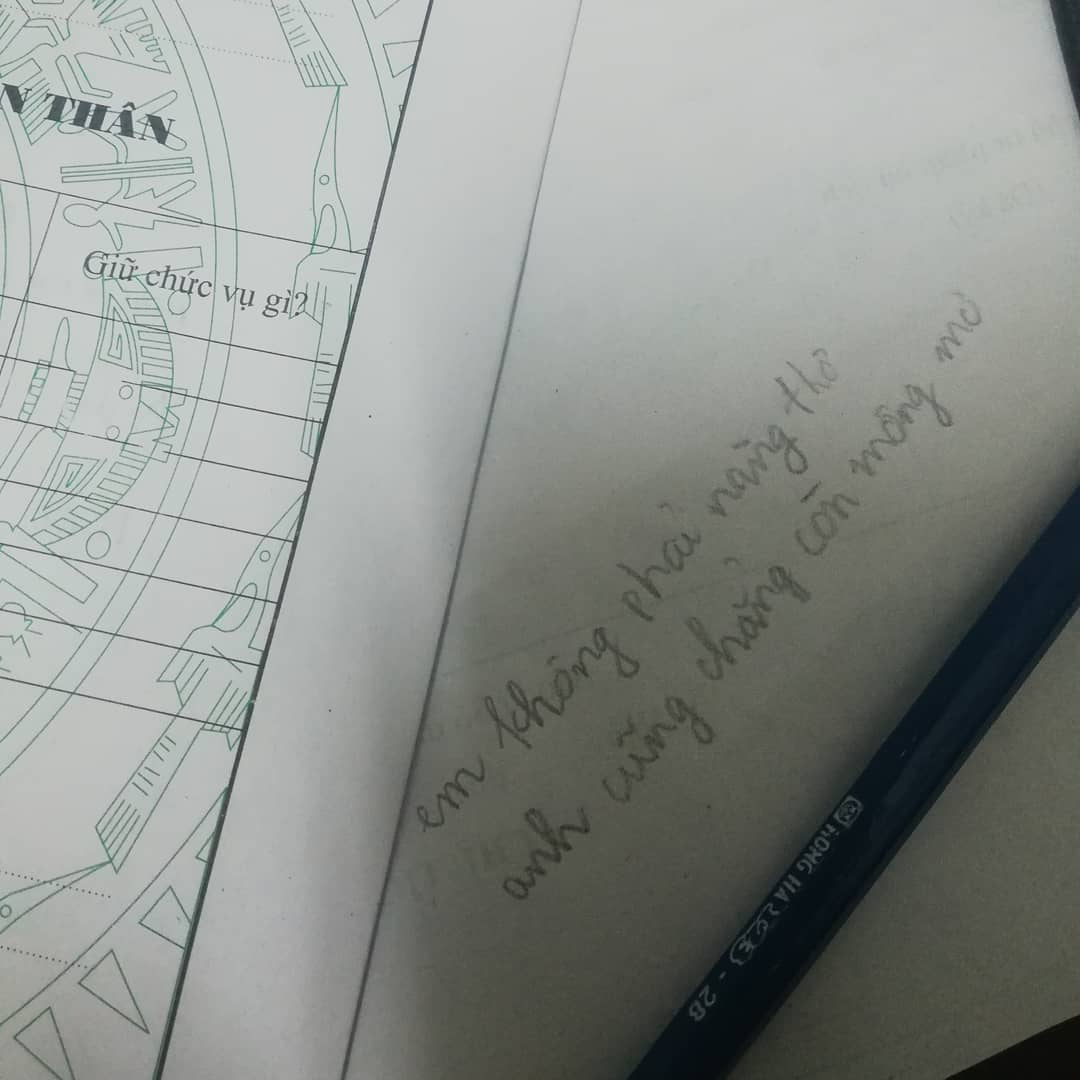 N THÂN
Giữ chức vụ gì?
em không phải nàng thơ
anh cũng chẳng còn mộng mơ
HỒNG HÀ
- 2B